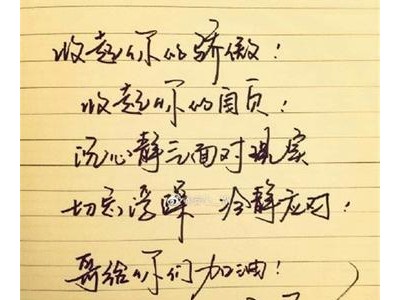 收起你的骄傲!
收起你的自负!
沉心静气面对现实
切忌浮躁 冷静应对!
哥给你们加油!